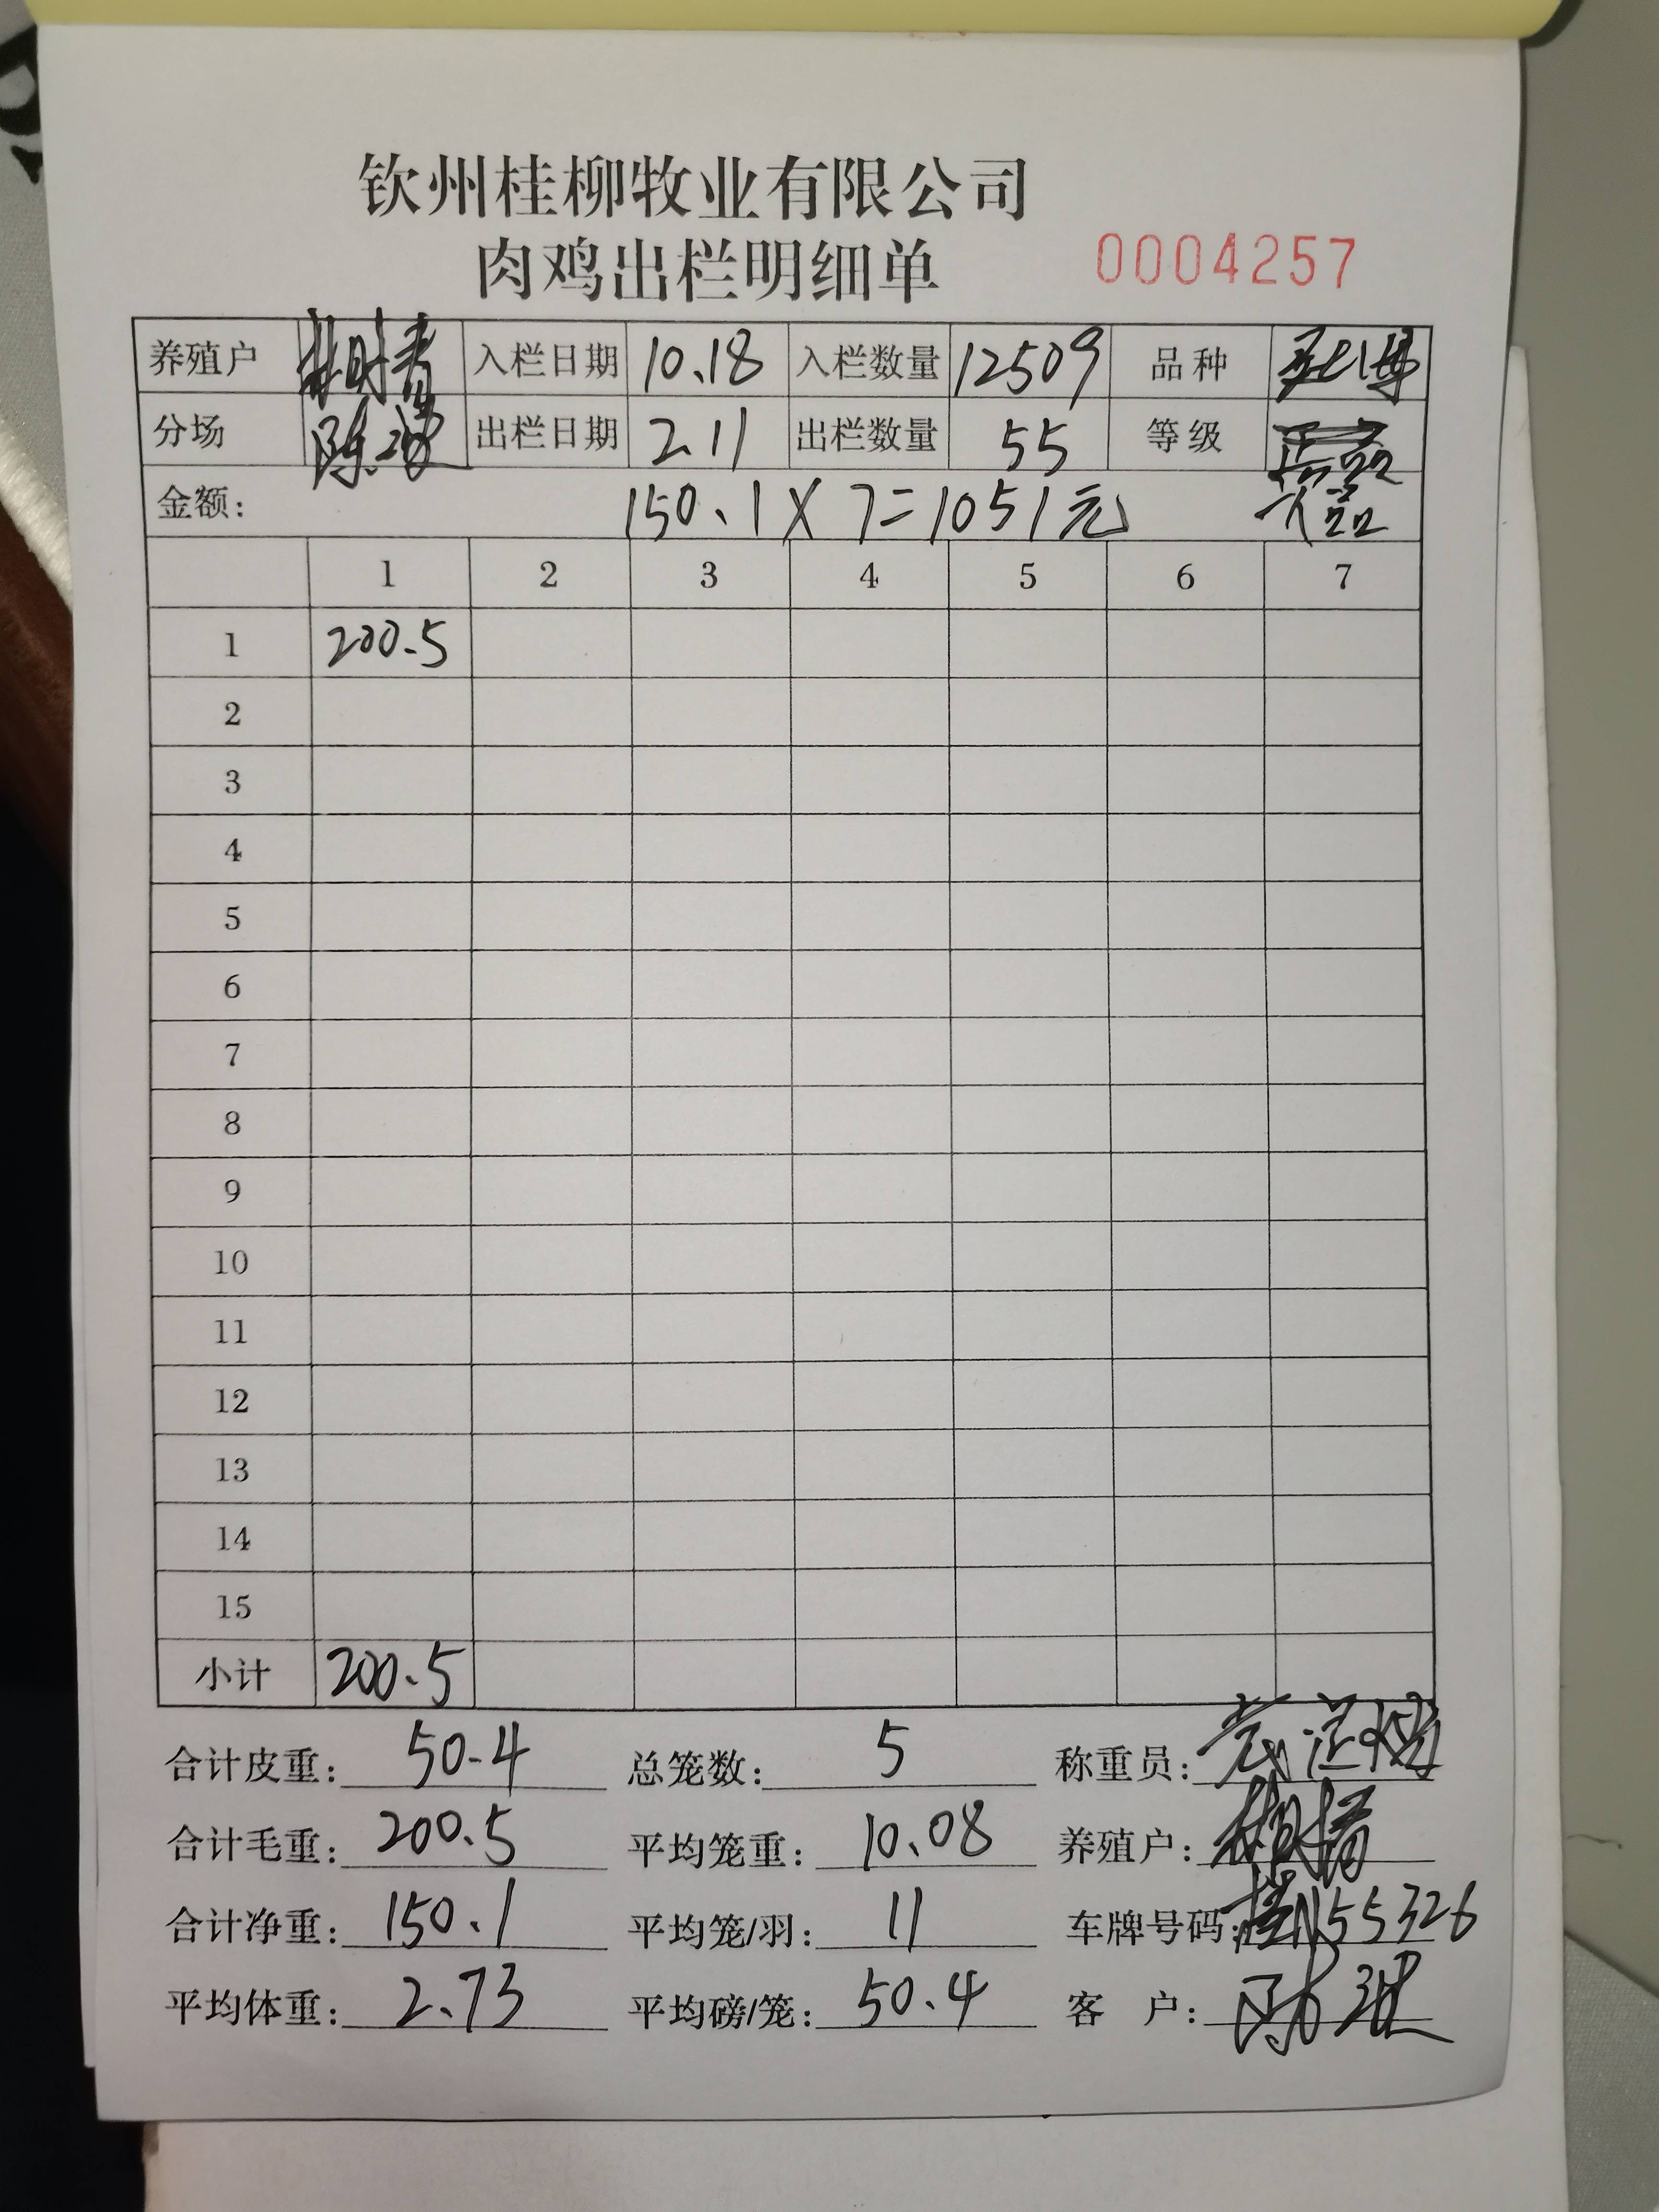 钦州桂柳牧业有限公司
肉鸡出栏明细单 0004257
养殖户 入栏日期 10.18 入栏数量 12509 品种
分场 出栏日期 2.11 出栏数量 55 等级
金额: 150.1 X 7=1051元 次品
1 2 3 4 5 6 7
1 200.5
2
3
4
5
6
7
8
9
10
11
12
13
14
15
小计 200.5
合计皮重: 50.4 总笼数: 5 称重员:
合计毛重: 200.5 平均笼重: 10.08 养殖户:
合计净重: 150.1 平均笼/羽: 11 车牌号码: 桂N55326
平均体重: 2.73 平均磅/笼: 50.4 客户: 陈